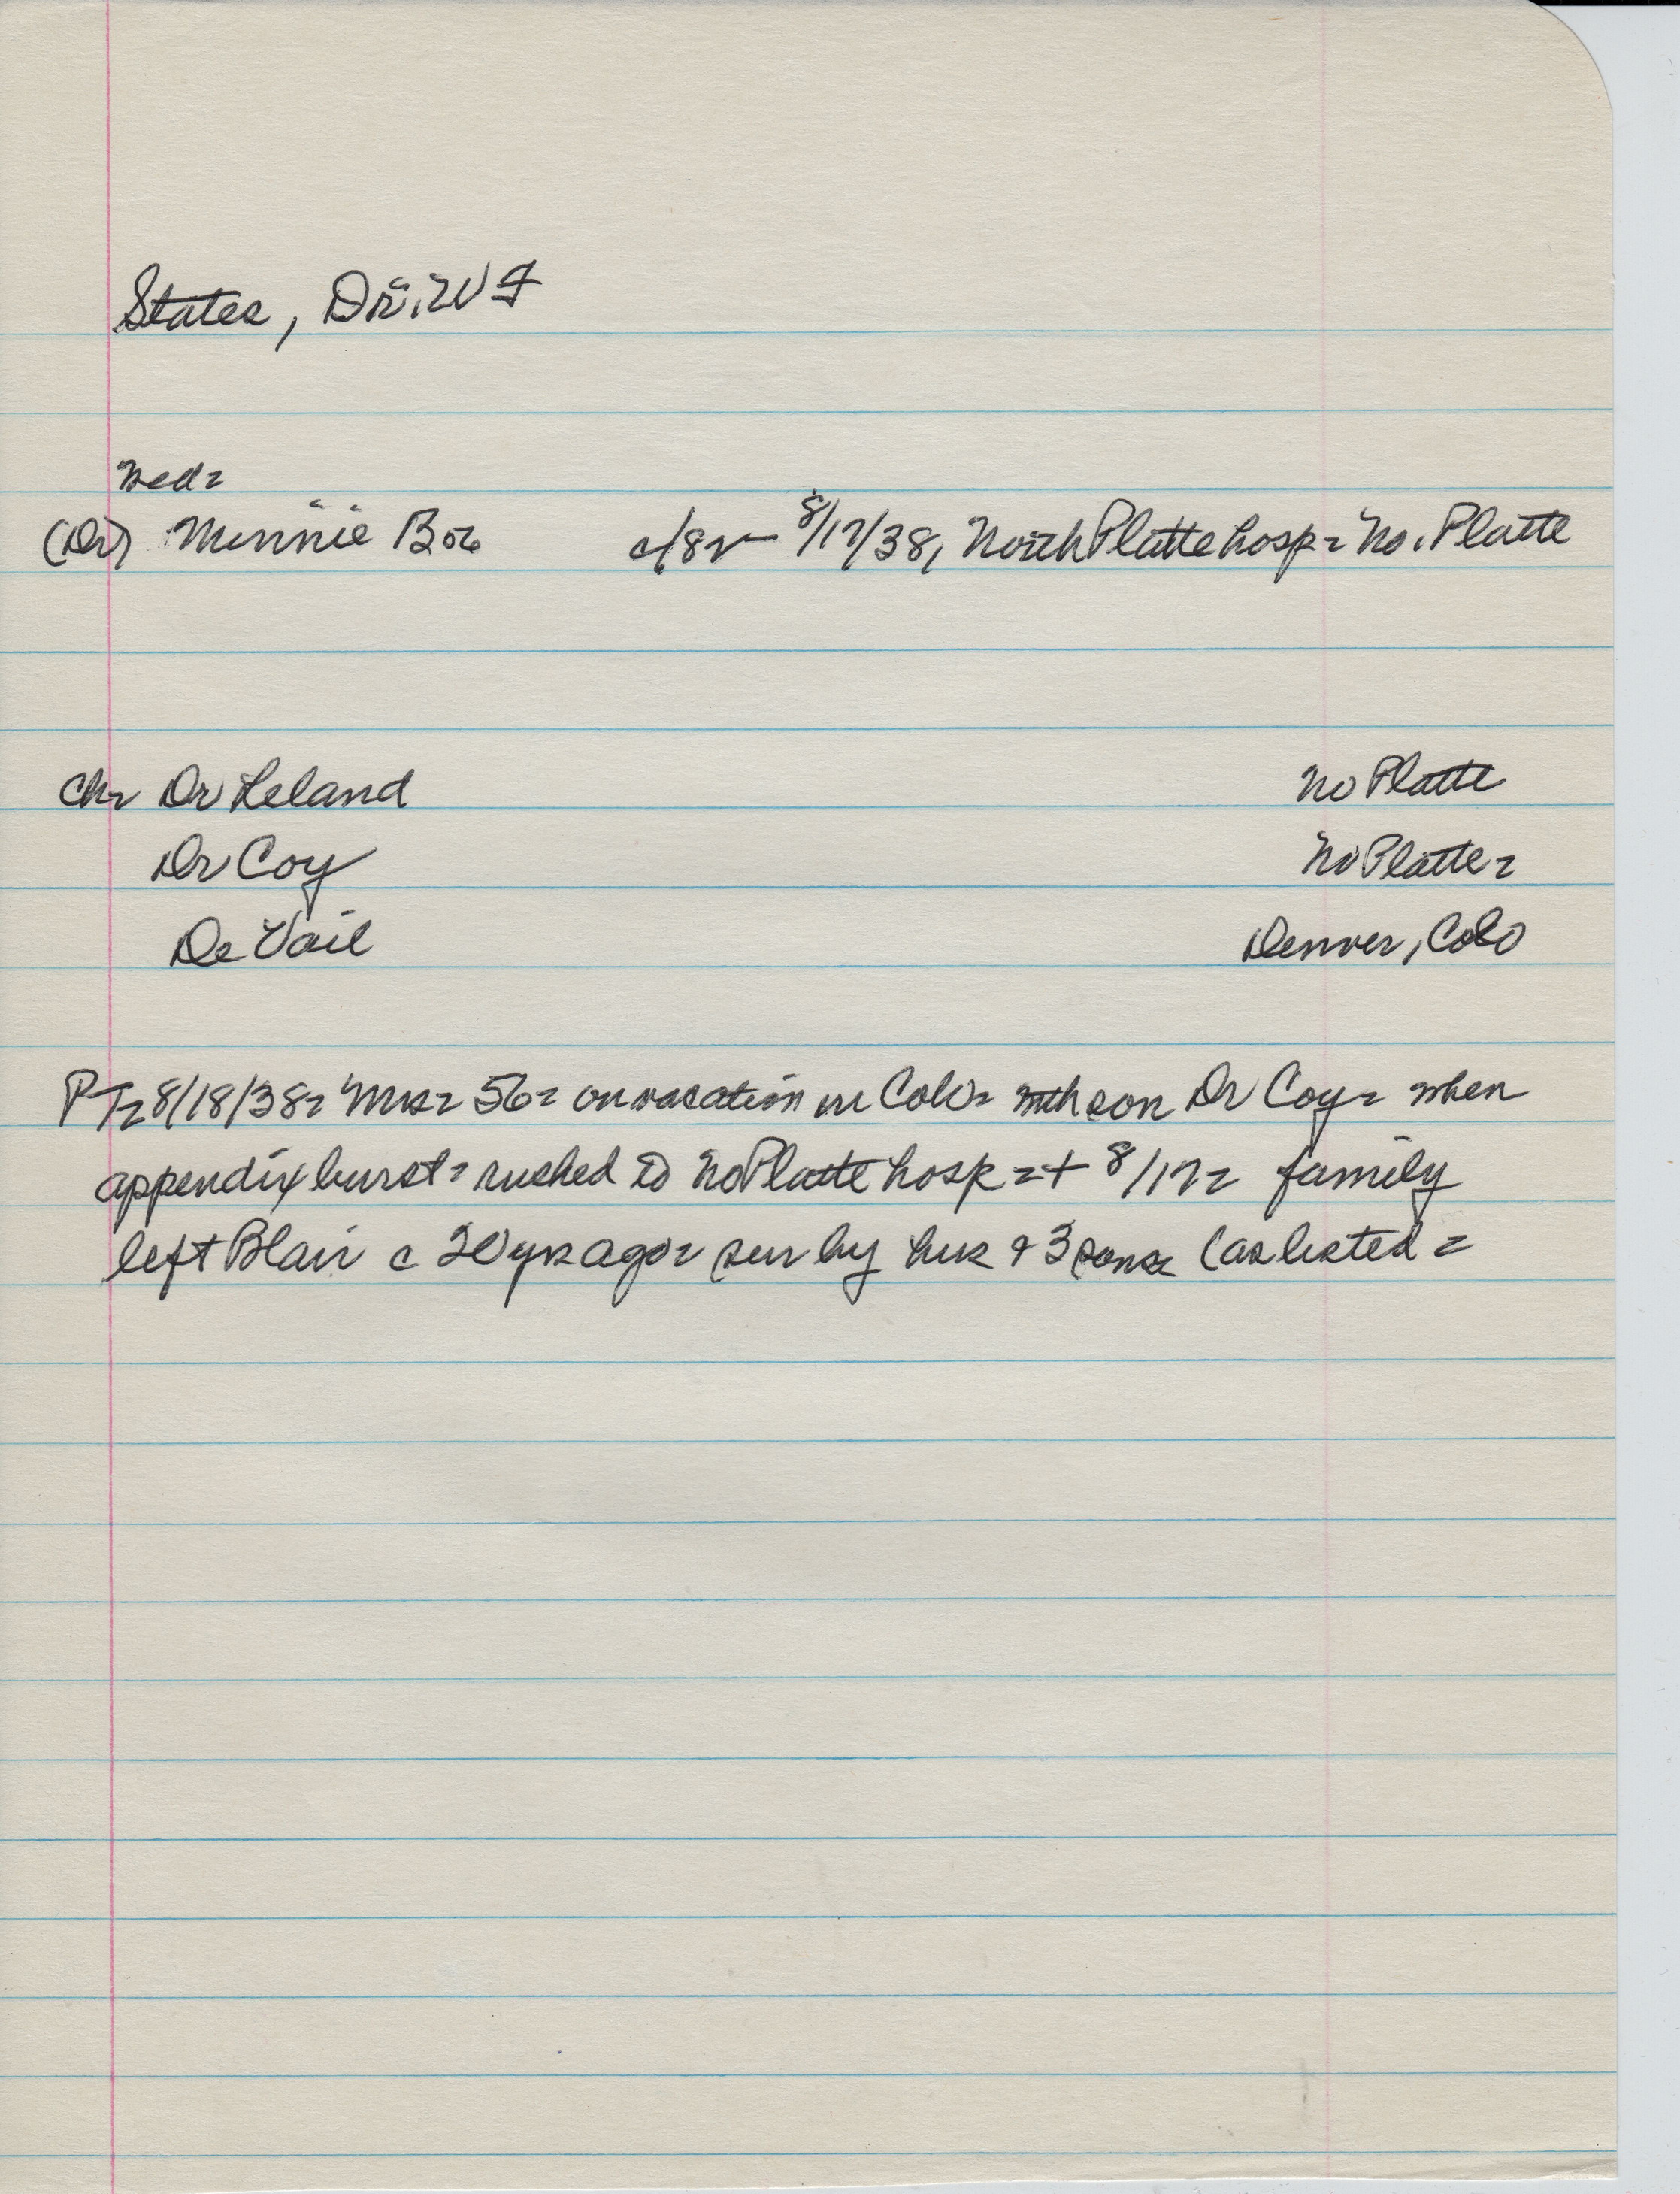 States, Dr. W I
Wed=
(Dr) Minnie Box c/82 8/17/38, North Platte hosp = No. Platte
Ch= Dr Leland No Platte
Dr Coy No Platte =
De Vail Denver, Colo
PT= 8/18/38= Mrs= 56= on vacation in Colo= with son Dr Coy= when
appendix burst= rushed to No Platte hosp =+ 8/17= family
left Blair c 20 yrs ago= sur by hus & 3 sons (as listed =